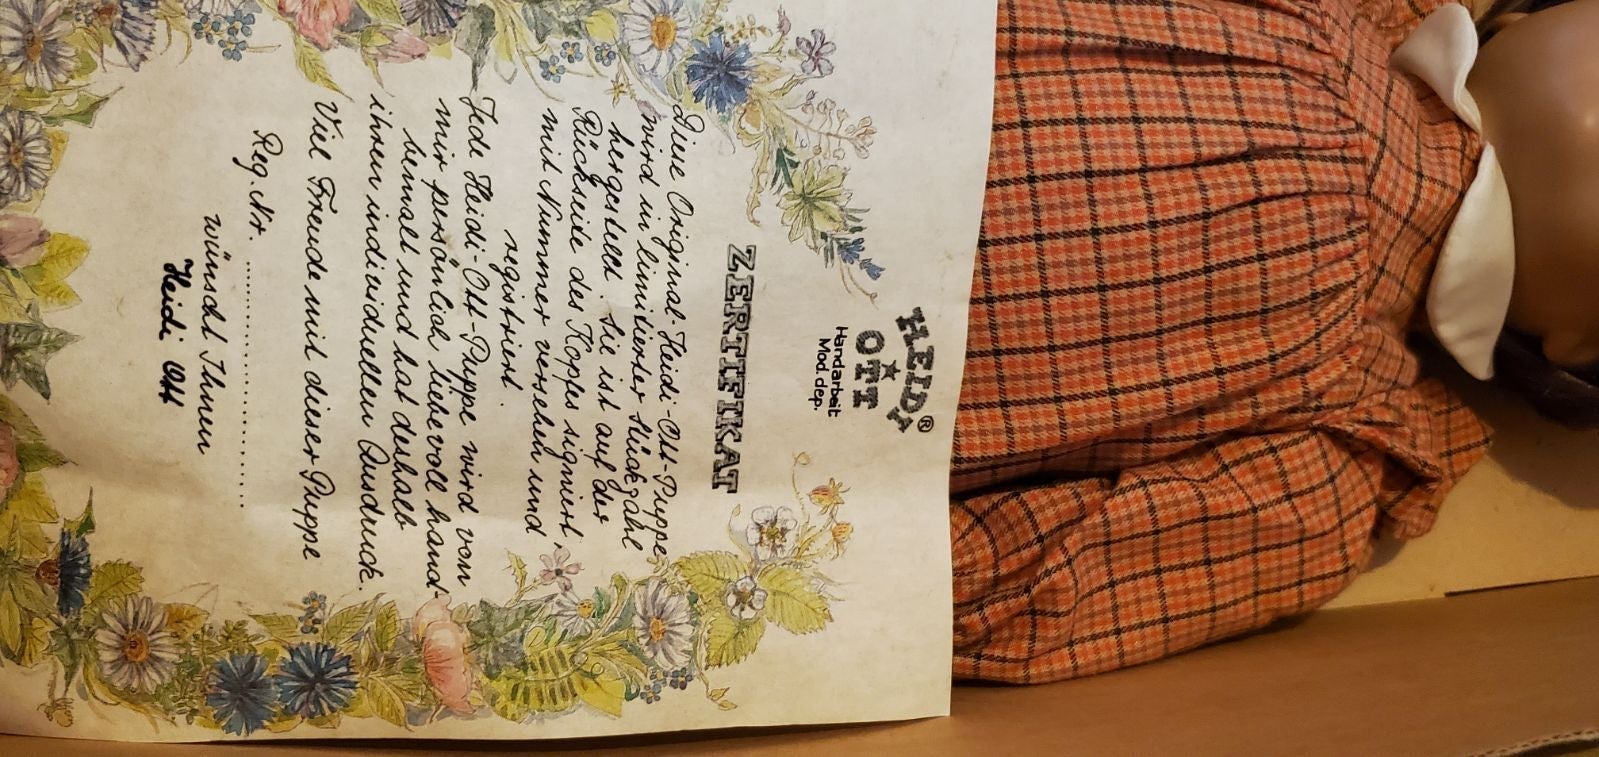 HEIDI®
OTT
Handarbeit
Mod. dep.
ZERTIFIKAT
Diese Original-Heidi-Ott-Puppe
wird in limitierter Stückzahl
hergestellt. Sie ist auf der
Rückseite des Kopfes signiert,
mit Nummer versehen und
registriert.
Jede Heidi-Ott-Puppe wird von
mir persönlich liebevoll hand-
bemalt und hat deshalb
ihren individuellen Ausdruck.
Viel Freude mit dieser Puppe
Reg. Nr. ....................
wünscht Ihnen
Heidi Ott